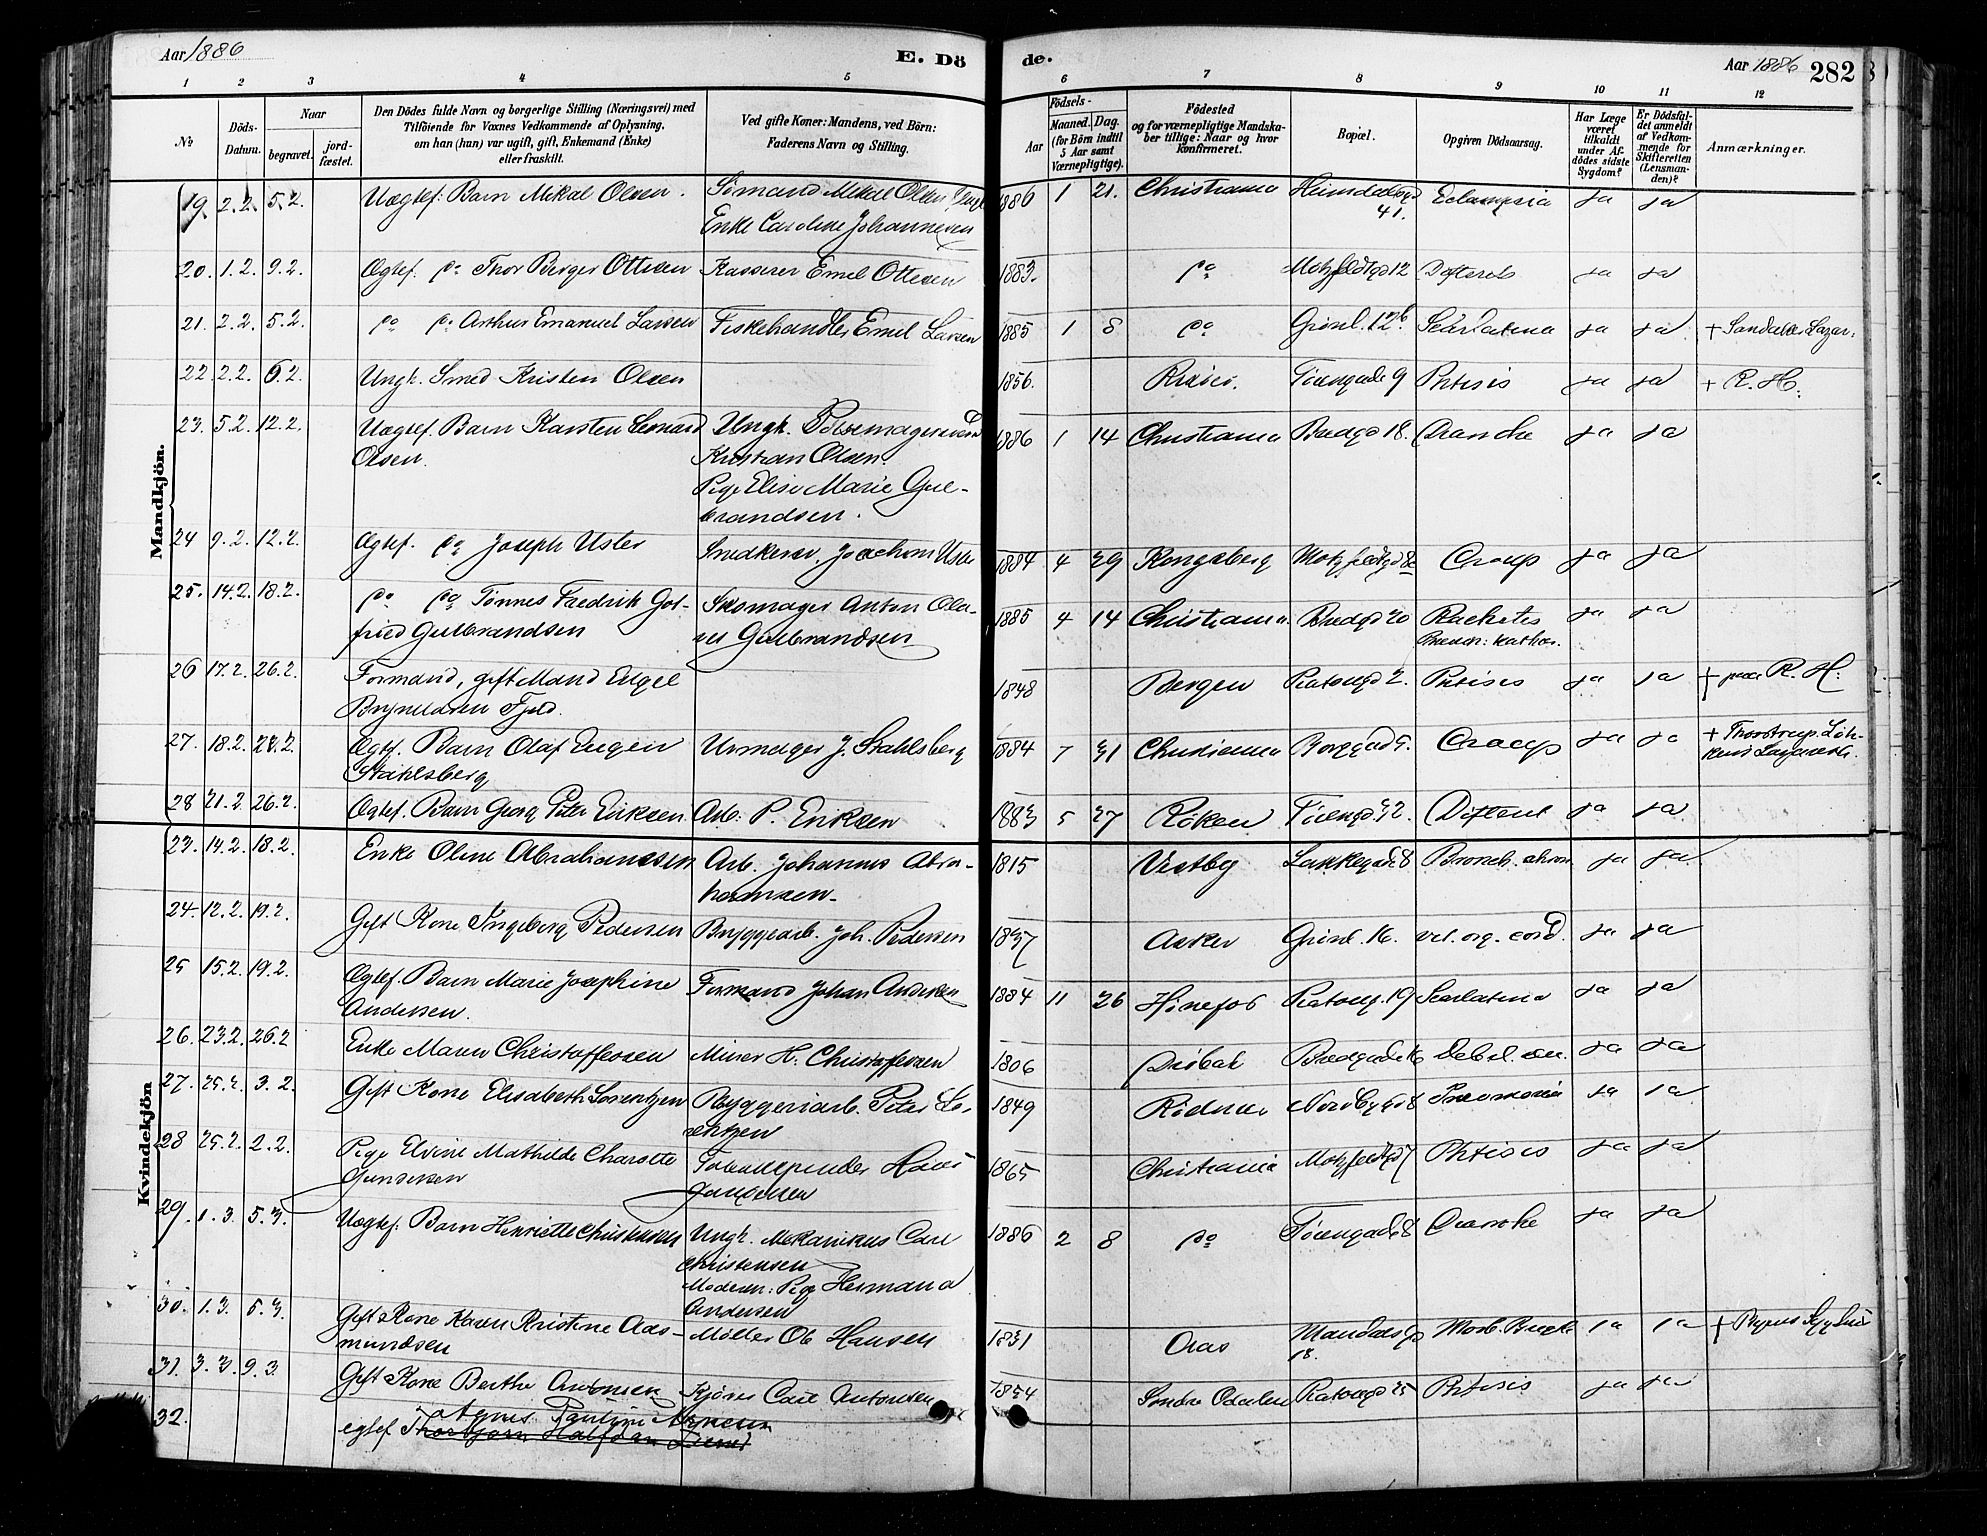 Aar 1886
E. Dö
de.
Aar 1886 282
1 2 3 4 5 6 7 8 9 10 11 12
No
Döds-
Datum.
Naar
begravet.
jord-
fæstet.
Den Dödes fulde Navn og borgerlige Stilling (Næringsvei) med
Tilföiende for Voxnes Vedkommende af Oplysning,
om han (hun) var ugift, gift, Enkemand (Enke)
eller fraskilt.
Ved gifte Koner: Mandens, ved Börn:
Faderens Navn og Stilling.
Födsels-
Aar
Maaned.
Dag.
(for Börn indtil
5 Aar samt
Værnepligtige).
Födested
og for værnepligtige Mandska-
ber tillige: Naar og hvor
konfirmeret.
Bopæl.
Opgiven Dödsaarsag.
Har Læge
været
tilkaldt
under Af-
dödes sidste
Sygdom?
Er Dödsfal-
det anmeldt
af Vedkom-
mende for
Skifteretten
(Lensman-
den)?
Anmærkninger.
Mandkjön.
19. 2.2. 5.2. Uægtef. Barn Mikal Olsen. Sömand Mikal Olsen 1886 1 21. Christiania 41. Eclampsia ja ja
Enke Caroline Johannesen
20. 1.2. 9.2. Ægtef. do Thor Berger Ottesen Kasserer Emil Ottesen 1883. do Motzfeldtgd 12 Difterit ja ja
21. 2.2. 5.2. do do Arthur Emanuel Larsen Fiskehandler Emil Larsen 1885 1 8 do Grönl. 12b. Scarlatina ja ja + Lazar.
22. 2.2. 6.2. Ungk. Smed Kristen Olsen 1856. Töiengade 9 Phtisis ja ja + R. H.
23. 5.2. 12.2. Uægtef. Barn Karsten Leonard Ungk. 1886 1 14 Christiania Bredgd 18. ja ja
Olsen. Kristian Olsen.
Pige Elise Marie Gul-
brandsen.
24 9.2. 12.2. Ægtef. do Joseph Usler Snedkersv. Joachim 1884 4 29 Kongsberg Croup ja ja
25. 14.2. 18.2. do do Tönnes Fredrik Got- Skomager Anton Ola- 1885 4 14 Christiania Bredgd 20 Rachitis ja ja
fried Gulbrandsen us Gulbrandsen
26 17.2. 26.2. Formand, gift Mand Engel 1848 Bergen Platougd 2. Phtisis ja ja + R. H.
Bryneldsen Fjeld.
27. 18.2. 28.2. Ægtef. Barn Olaf Eugen Urmager J. Stahlsberg 1884 7 31 Christiania Croup ja ja + Thorstrup. Lök-
Stahlsberg kens Lazareth.
28 21.2. 26.2. Ægtef. Barn Georg Peter Eriksen. Arb. P. Eriksen 1883 5 27 Röken Töiengd 32. Difterit ja ja
Kvindekjön
23. 14.2. 18.2. Enke Oline Abrahamsen Arb. Johannes Abra- 1815 Vestby Lakkegade 8 Bronch. chron ja ja
hamsen.
24. 12.2. 19.2. Gift Kone Ingeborg Pedersen Bryggearb. Joh. Pedersen 1837 Asker Grönl. 16. vit. org. cord. ja ja
25 15.2. 19.2. Ægtef. Barn Marie Josephine Formand Johan Andersen 1884 11 26 Hönefos Platoug. 19 Scarlatina ja ja
Andersen.
26. 23.2. 26.2 Enke Maren Christoffersen Murer H. Christoffersen 1806 Dröbak Bredgade 16 Debil. sen. ja ja
27. 25.2. 3.2. Gift Kone Elisabeth Lorentzen Bryggeriarb. Peter Lo- 1849 Nordbygd 8 Pneumonia ja ja
rentzen
28 25.2. 2.2. Pige Elvine Mathilde Charlotte 1865 Christiania Motzfeldtgd 7 Phtisis ja ja
Gundersen Gundersen
29. 1.3. 5.3. Uægtef. Barn Henriette Christensen Ungk. Mekanikus Carl 1886 2 8 do ja ja
Christensen
Moderen: Pige Hermana
Andersen
30. 1.3. 5.3. Gift Kone Karen Kristine Aas- Möller Ob Hansen 1831 Aas Mandalsgd Morb. Brigh. ja ja
mundsen 18.
31. 3.3. 9.3. Gift Kone Berthe Antonsen Kjörer Carl Antonsen 1854 Söndre Odalen Platougd 25 Phtisis ja ja
32. Agnes Pauline
egtef Thorbjörn Halfdan